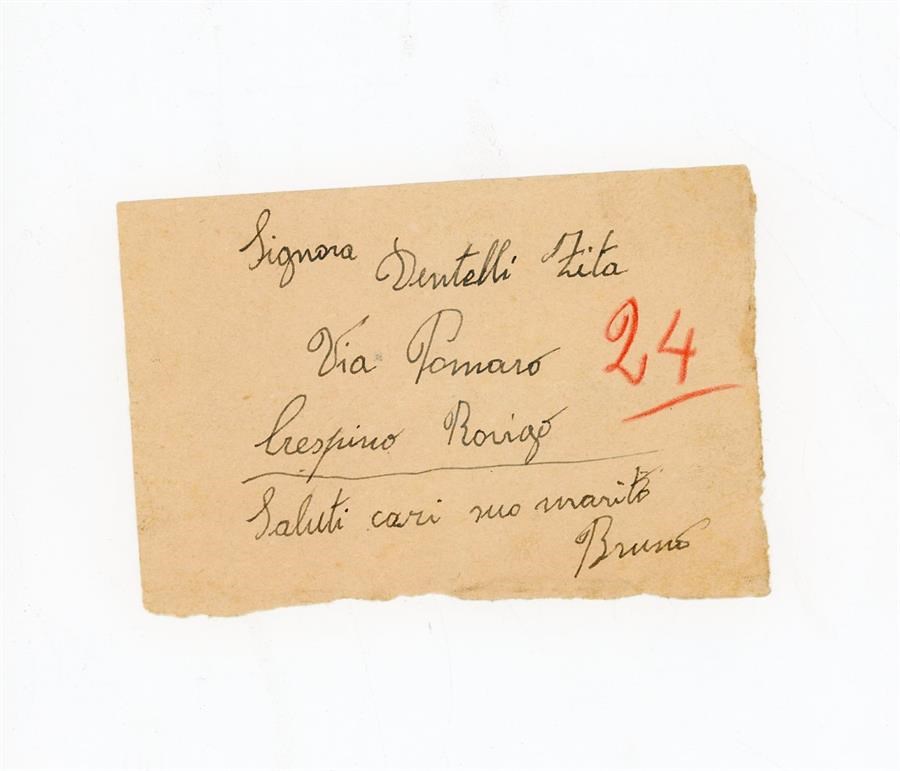 Signora Dentelli Zita
Via Pomaro
24
Crespino Rovigo
Saluti cari suo marito
Bruno